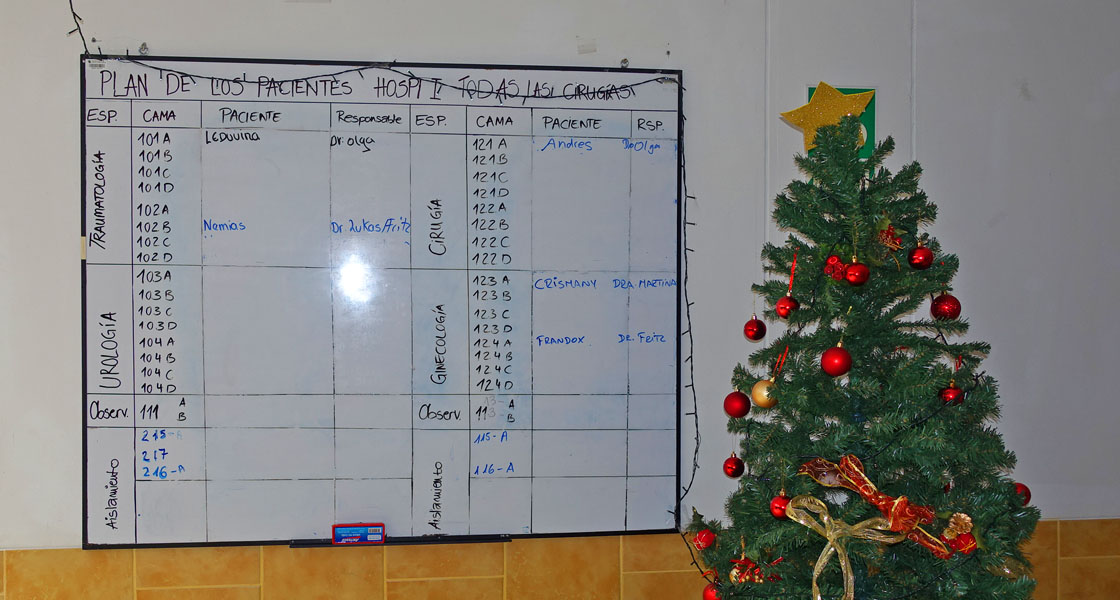 PLAN DE LOS PACIENTES HOSPI II TODAS LAS CIRUGIAS
ESP. CAMA PACIENTE Responsable ESP. CAMA PACIENTE RSP.
TRAUMATOLOGÍA
101 A Leduvina Dr. olga
101 B
101 C
101 D
102 A
102 B Nemias Dr. Lukas/Fritz
102 C
102 D
UROLOGÍA
103 A
103 B
103 C
103 D
104 A
104 B
104 C
104 D
Observ. 111 A
B
Aislamiento
215-A
217
216-A
CIRUGÍA
121 A Andres Olga
121 B
121 C
121 D
122 A
122 B
122 C
122 D
GINECOLOGÍA
123 A CRISMANY DRA. MARTINA
123 B
123 C
123 D
124 A FRANDOX. DR. FRITZ
124 B
124 C
124 D
Observ. 113 A
B
Aislamiento
115-A
116-A